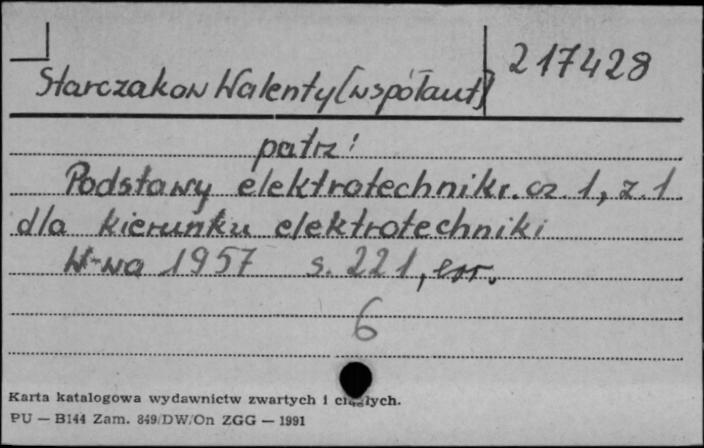 217428
Starczakow Walenty [współaut]
patrz:
Podstawy elektrotechniki. cz 1, z. 1
dla kierunku elektrotechniki
W-wa 1957 s. 221, err.
6
Karta katalogowa wydawnictw zwartych i ciągłych.
PU — B144 Zam. 849/DW/On ZGG — 1991